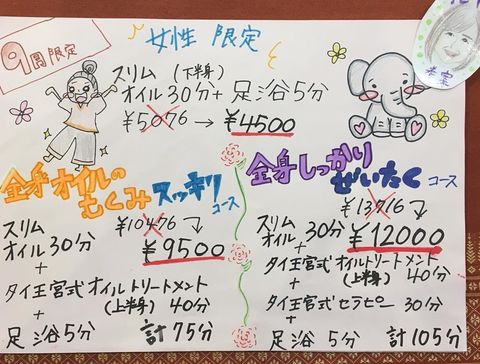 9周限定
女性 限定
スリム (下半身)
オイル30分+足浴5分
¥5076 → ¥4500
全身オイルの
むくみスッキリ
コース
スリム
オイル30分
¥10476
¥9500
+
タイ王宮式オイルトリートメント
(上半身) 40分
+
足浴5分 計75分
全身しっかり
ぜいたく コース
¥13716
スリム
オイル30分
¥12000
+
タイ王宮式オイルトリートメント
(上半身) 40分
+
タイ王宮式セラピー 30分
+
足浴 5分 計105分